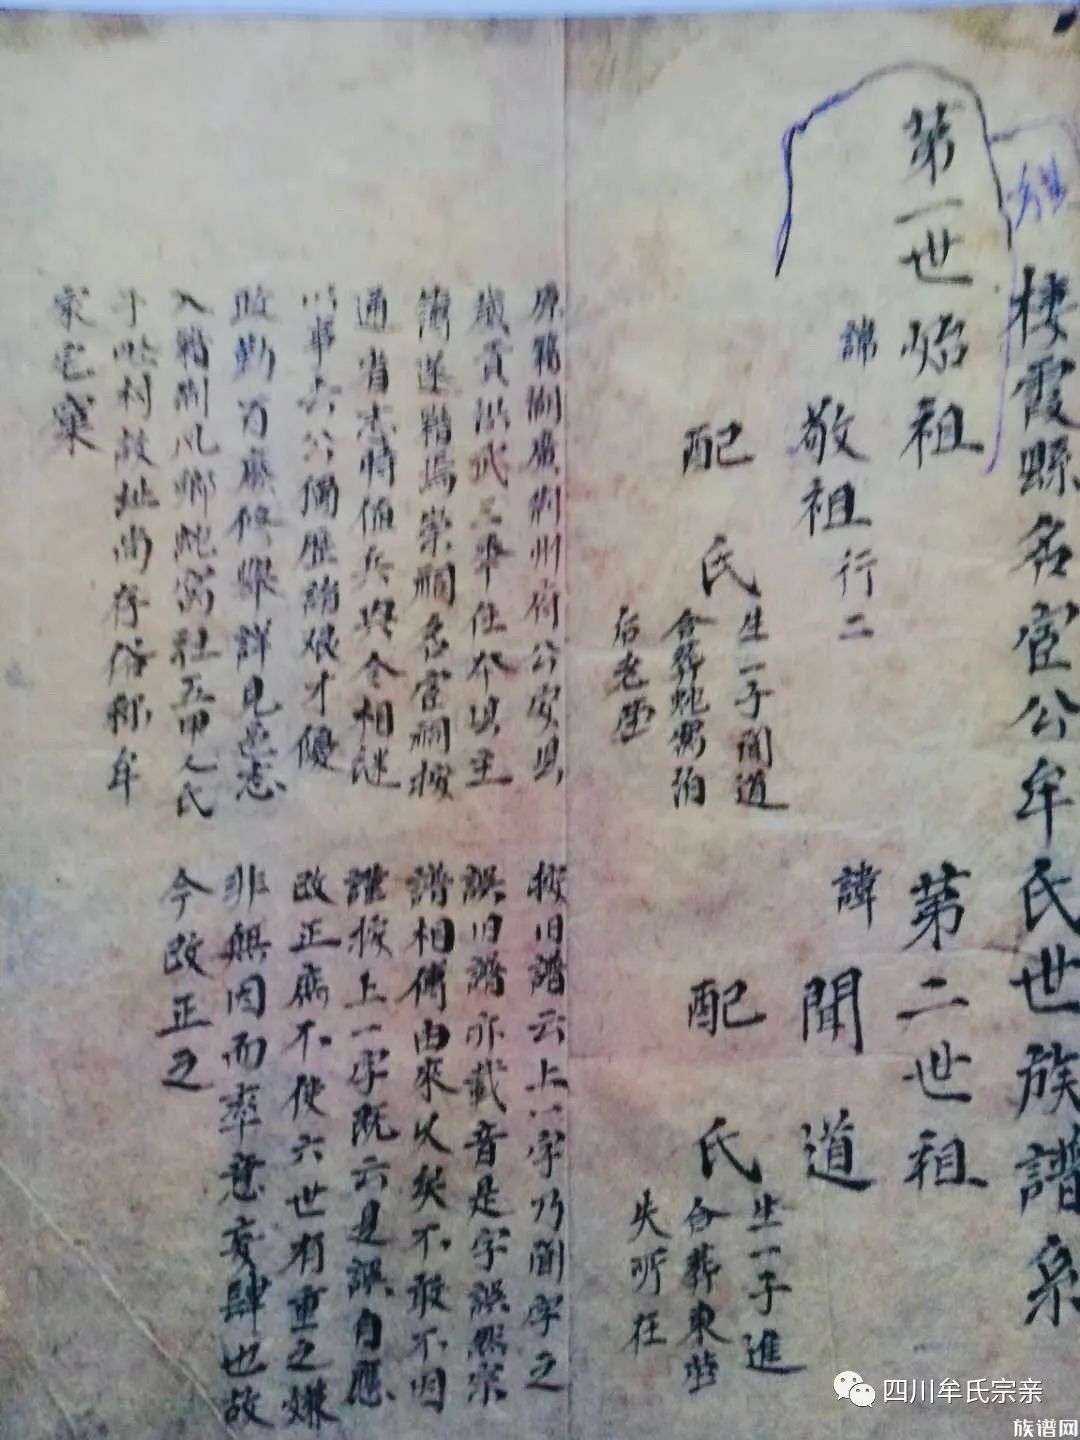 棲霞縣名宦公牟氏世族譜系
第一世始祖
諱 敬祖 行二
配 氏
生一子聞道
合葬蛇窩泊
后老塋
原籍湖廣荆州府公安県
歲貢洪武三年任本県主
簿遂籍焉崇祠名宦祠按
通省志時值兵興令相継
以事去公備歷諸艱才優
政勤百廢修舉詳見邑志
入籍荆凡鄉蛇窩社五甲人氏
于此村故址尚存俗称牟
家宅窠
第二世祖
諱 聞道
配 氏
生一子進
合葬東塋
失所在
按旧譜云上一字乃聞字之
誤旧譜亦載音是字誤然宗
譜相傳由來久矣不敢不因
謹按上一字既云是誤自應
改正庶不使六世有重之嫌
非無因而率意妄肆也故
今改正之
四川牟氏宗亲
族谱网